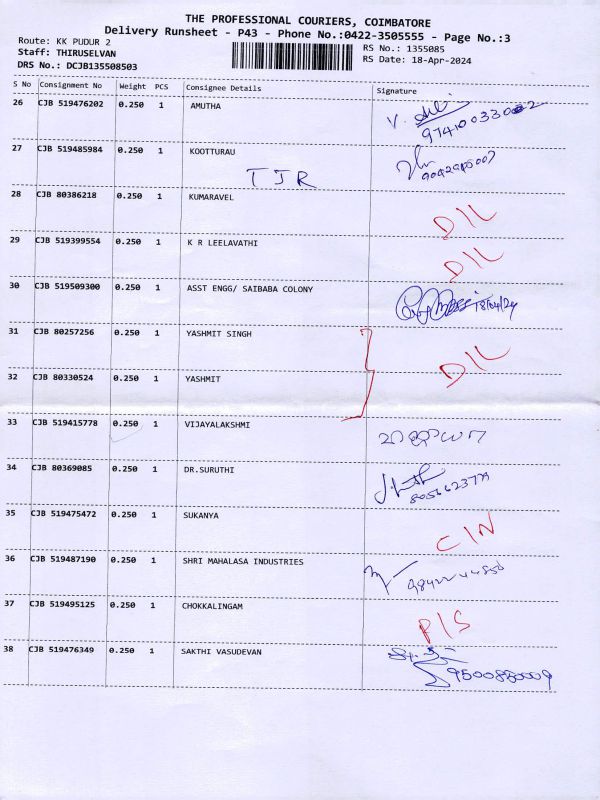 THE PROFESSIONAL COURIERS, COIMBATORE
Delivery Runsheet - P43 - Phone No.:0422-3505555 - Page No.:3
Route: KK PUDUR 2
Staff: THIRUSELVAN
DRS No.: DCJB135508503
RS No.: 1355085
RS Date: 18-Apr-2024
S No Consignment No Weight PCS Consignee Details Signature
26 CJB 519476202 0.250 1 AMUTHA
27 CJB 519485984 0.250 1 KOOTTURAU
TJR
28 CJB 80386218 0.250 1 KUMARAVEL D/L
29 CJB 519399554 0.250 1 K R LEELAVATHI D/L
30 CJB 519509300 0.250 1 ASST ENGG/ SAIBABA COLONY 18/04/24
31 CJB 80257256 0.250 1 YASHMIT SINGH
D/L
32 CJB 80330524 0.250 1 YASHMIT
33 CJB 519415778 0.250 1 VIJAYALAKSHMI
34 CJB 80369085 0.250 1 DR.SURUTHI
35 CJB 519475472 0.250 1 SUKANYA C/N
36 CJB 519487190 0.250 1 SHRI MAHALASA INDUSTRIES
37 CJB 519495125 0.250 1 CHOKKALINGAM P/S
38 CJB 519476349 0.250 1 SAKTHI VASUDEVAN
9500880009